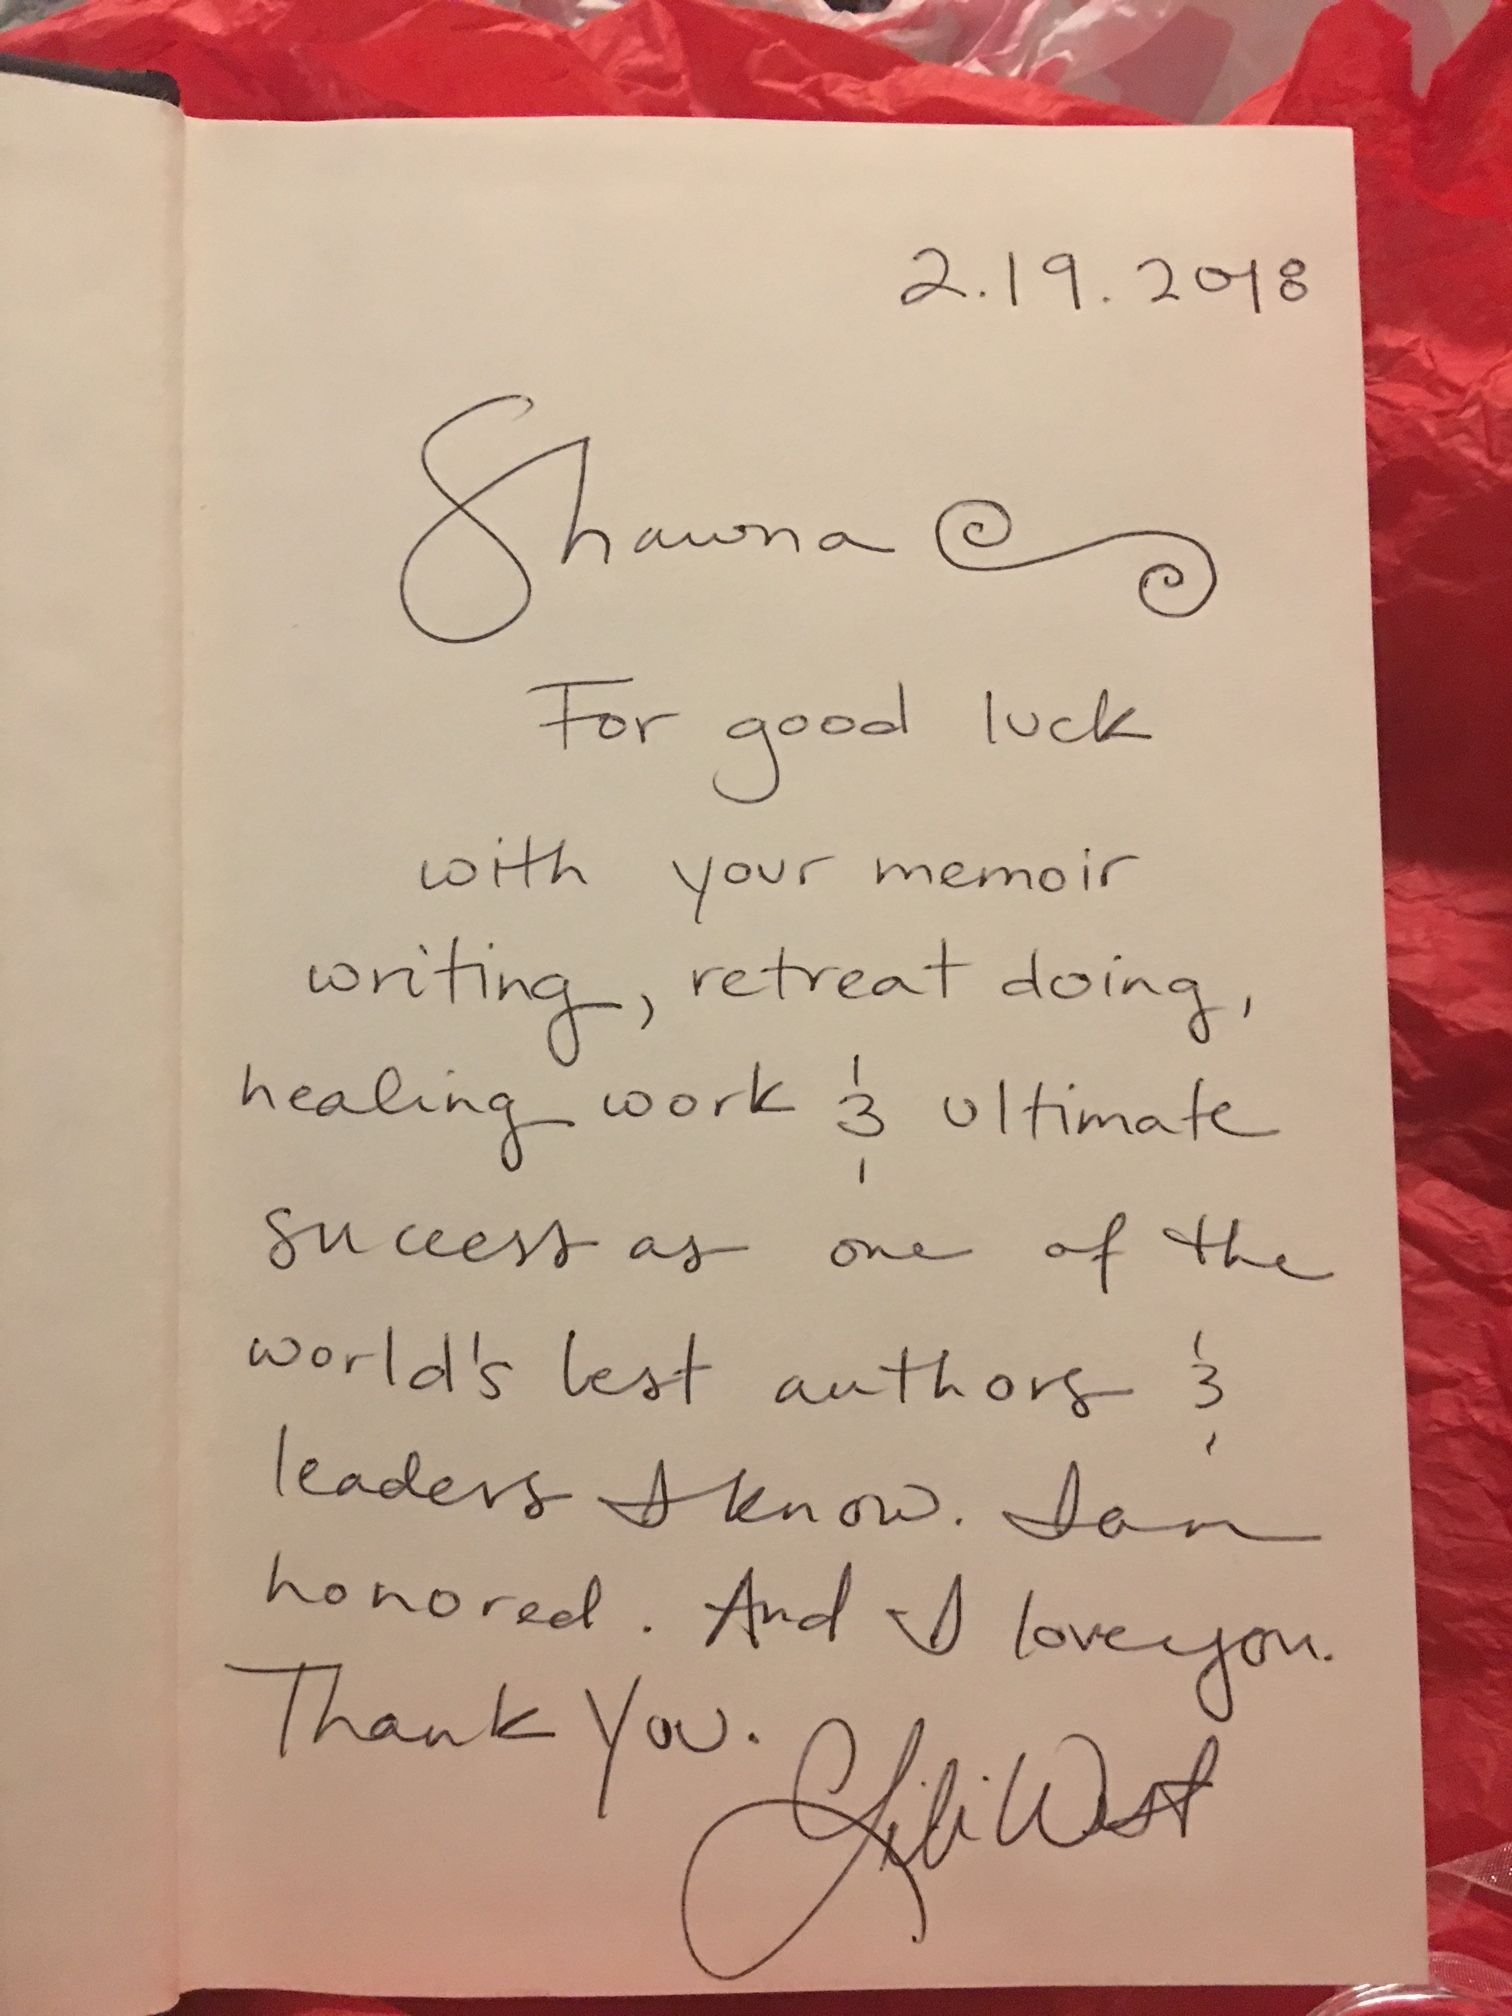 2.19.2018
Shawna
For good luck
with your memoir
writing, retreat doing,
healing work & ultimate
success as one of the
world's best authors &
leaders I know. I am
honored. And I love you.
Thank You. Lili West